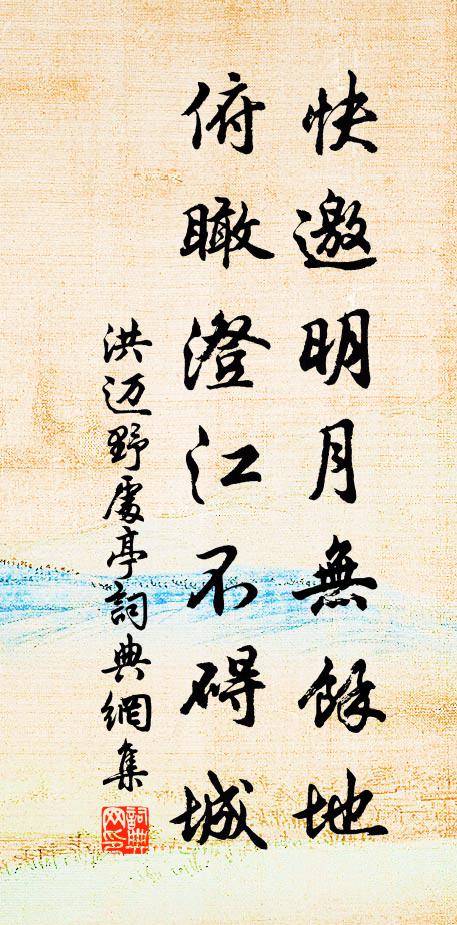 快邀明月無餘地
俯瞰澄江不碍城
洪迈野處亭詞典網集
詞典网印